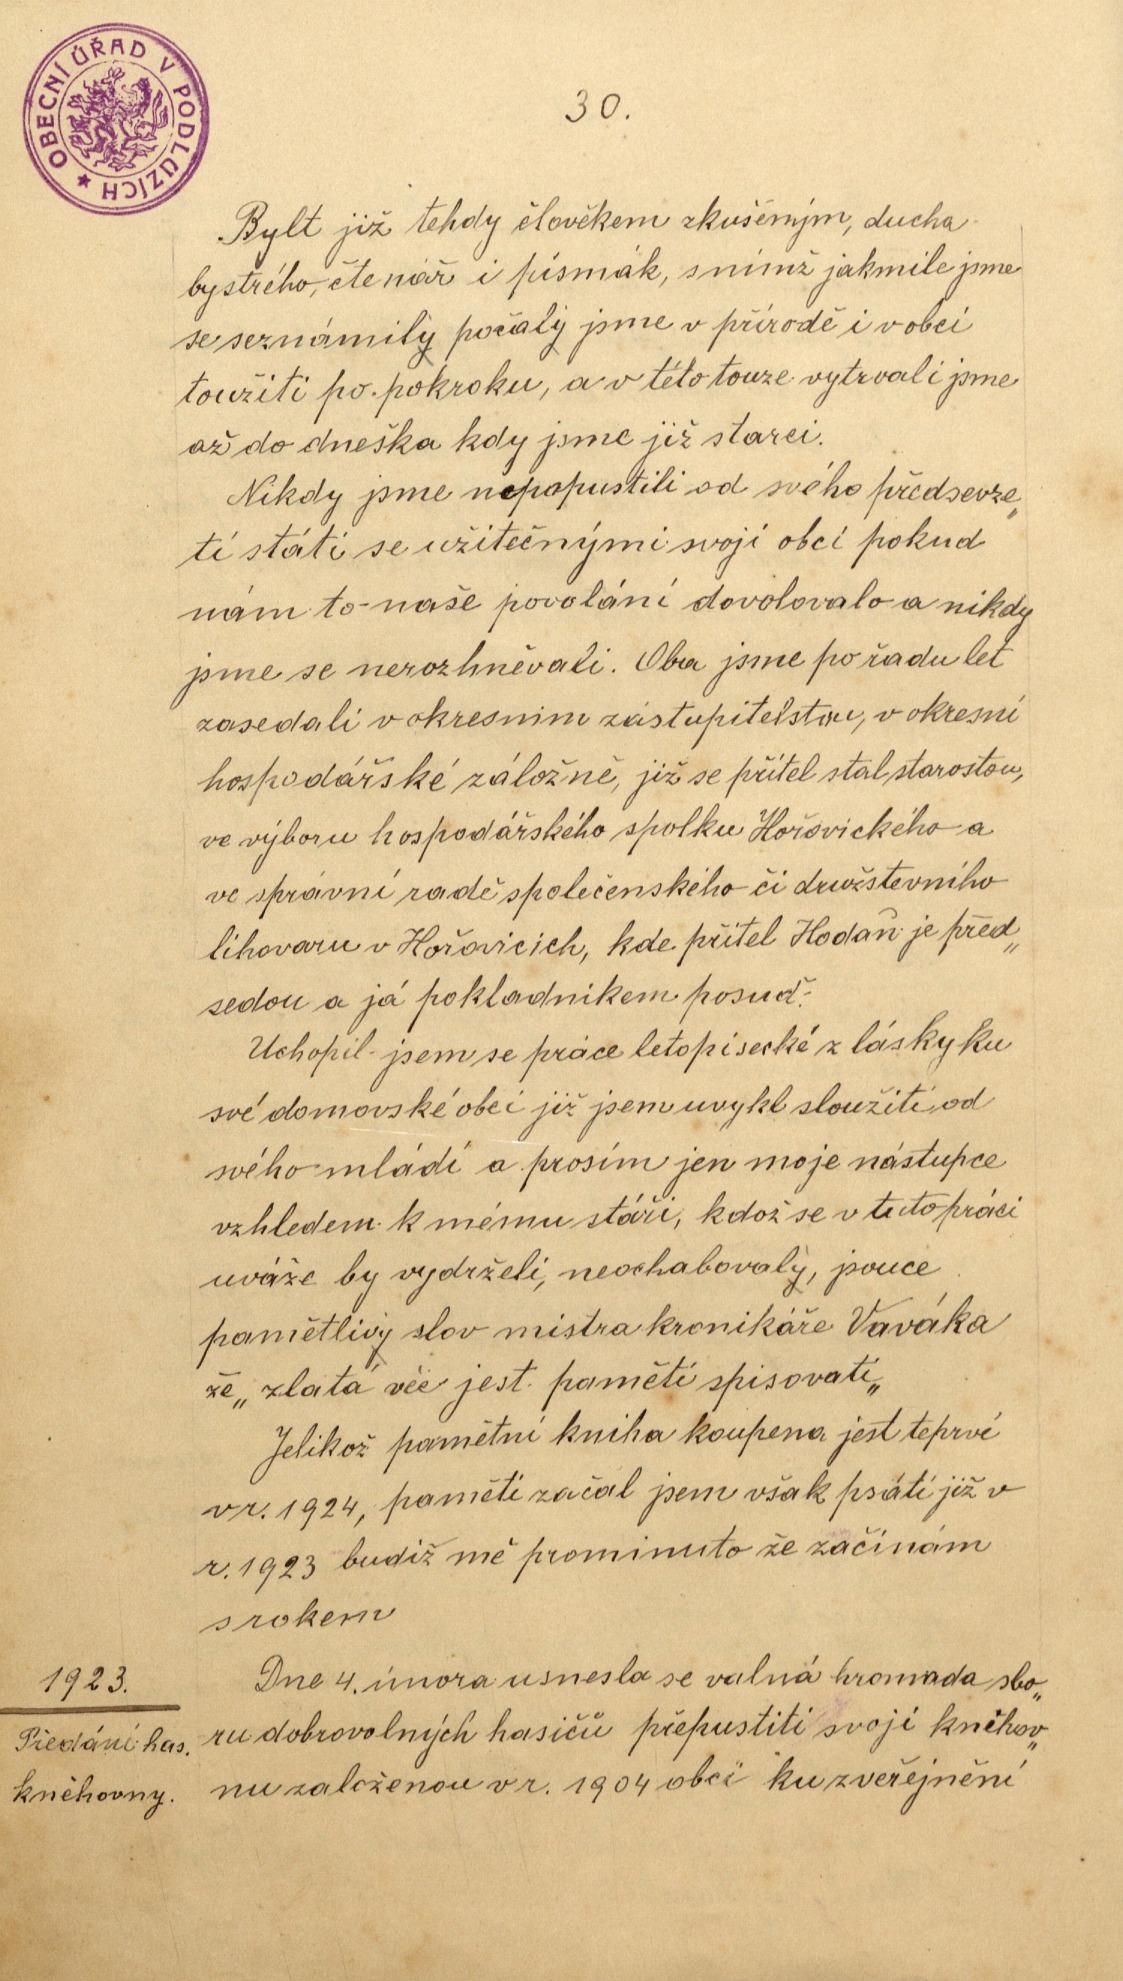 OBECNÍ ÚŘAD V PODLUZÍCH
30.
Bylt již tehdy člověkem zkušeným, ducha
bystrého, čtenář i písmák, s nímž jakmile jsme
se seznámily počaly jsme v přírodě i v obci
toužiti po pokroku, a v této touze vytrvali jsme
až do dneška kdy jsme již starci.
Nikdy jsme nepopustili od svého předsevze„
tí státi se užitečnými svojí obcí pokud
nám to naše povolání dovolovalo a nikdy
jsme se nerozhněvali. Oba jsme po řadu let
zasedali v okresním zástupitelstvu, v okresní
hospodářské záložně, již se přítel stal starostou,
ve výboru hospodářského spolku Hořovického a
ve správní radě společenského či družstevního
lihovaru v Hořovicích, kde přítel Hodaň je před„
sedou a já pokladníkem posuď.
Uchopil jsem se práce letopisecké z lásky ku
své domovské obci již jsem uvykl sloužiti od
svého mládí a prosím jen moje nástupce
vzhledem k mému stáří, kdož se v tuto práci
uváže by vydrželi, neochabovaly, jsouce
pamětlivy slov mistra kronikáře Vaváka
že „ zlatá věc jest paměti spisovati„
Jelikož pamětní kniha koupena jest teprvé
v r. 1924, paměti začal jsem však psáti již v
r. 1923 budiž mě prominuto že začínám
s rokem
1923.
Dne 4. února usnesla se valná hromada sbo„
Předání has.
ru dobrovolných hasičů přepustiti svojí kněhov„
kněhovny.
nu založenou v r. 1904 obci ku zveřejnění